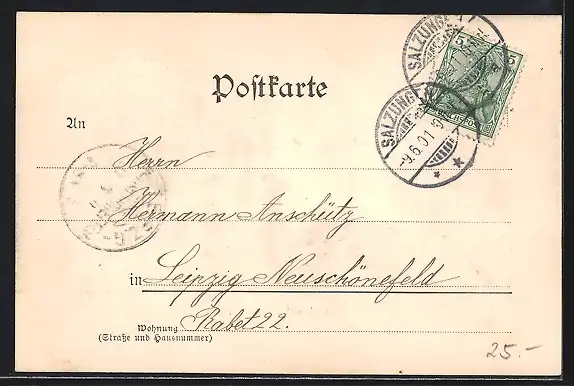 SALZUNGEN
5 5
Postkarte
SALZUNGEN
-9.6.01
An
Herrn
Hermann Anschütz
in Leipzig Neuschönefeld
Wohnung Rabet 22.
(Straße und Hausnummer)
25.-